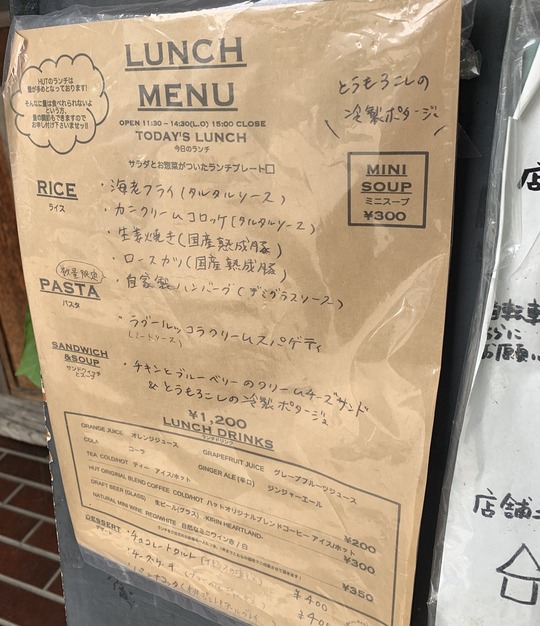 LUNCH
MENU
OPEN 11:30 - 14:30(L.O) 15:00 CLOSE
TODAY'S LUNCH
今日のランチ
サラダとお惣菜がついたランチプレート
HUTのランチは
量が多めとなっております!
そんなに量は食べれられないよ
という方、
量の調節もできますので
お申し付け下さいませッ!!
とうもろこしの
冷製ポタージュ
MINI
SOUP
ミニスープ
¥300
RICE
ライス
・海老フライ(タルタルソース)
・カニクリームコロッケ(タルタルソース)
・生姜焼き(国産熟成豚)
・ロースカツ(国産熟成豚)
数量限定
・自家製ハンバーグ(デミグラスソース)
PASTA
パスタ
・ラグールッコラクリームスパゲティ
(ミートソース)
SANDWICH
&SOUP
サンドウィッチ
とスープ
・チキンとブルーベリーのクリームチーズサンド
& とうもろこしの冷製ポタージュ
¥1,200
LUNCH DRINKS
ランチドリンク
ORANGE JUICE オレンジジュース GRAPEFRUIT JUICE グレープフルーツジュース
COLA コーラ GINGER ALE (辛口) ジンジャーエール
TEA COLD/HOT ティー アイス/ホット ¥200
HUT ORIGINAL BLEND COFFEE COLD/HOT ハットオリジナルブレンドコーヒー アイス/ホット ¥300
DRAFT BEER (GLASS) 生ビール(グラス) -KIRIN HEARTLAND-
NATURAL MINI WINE RED/WHITE 自然なミニワイン赤 / 白 ¥350
DESSERT
・チョコレートタルト ¥400
・チーズケーキ
自転車
お願い
店舗